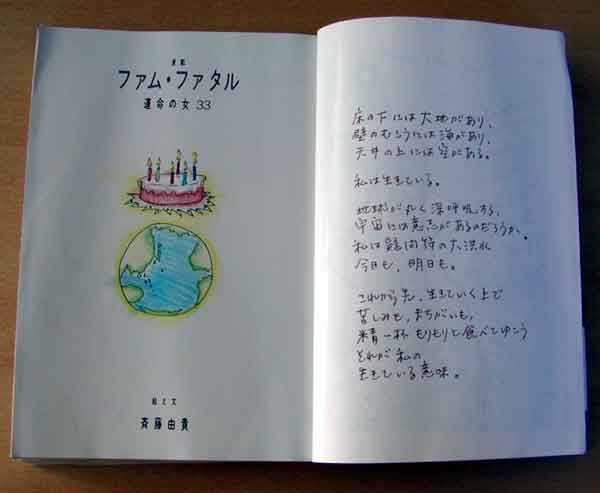 ファム・ファタル
運命の女 33
絵と文
斉藤由貴
床の下には大地があり、
壁のむこうには海があり、
天井の上には空がある。
私は生きている。
地球が丸く深呼吸する、
宇宙には意志があるのだろうか、
私は疑問符の大洪水
今日も、明日も。
これから先、生きていく上で
苦しみも、まちがいも、
精一杯もりもりと食べてゆこう
それが私の
生きている意味。